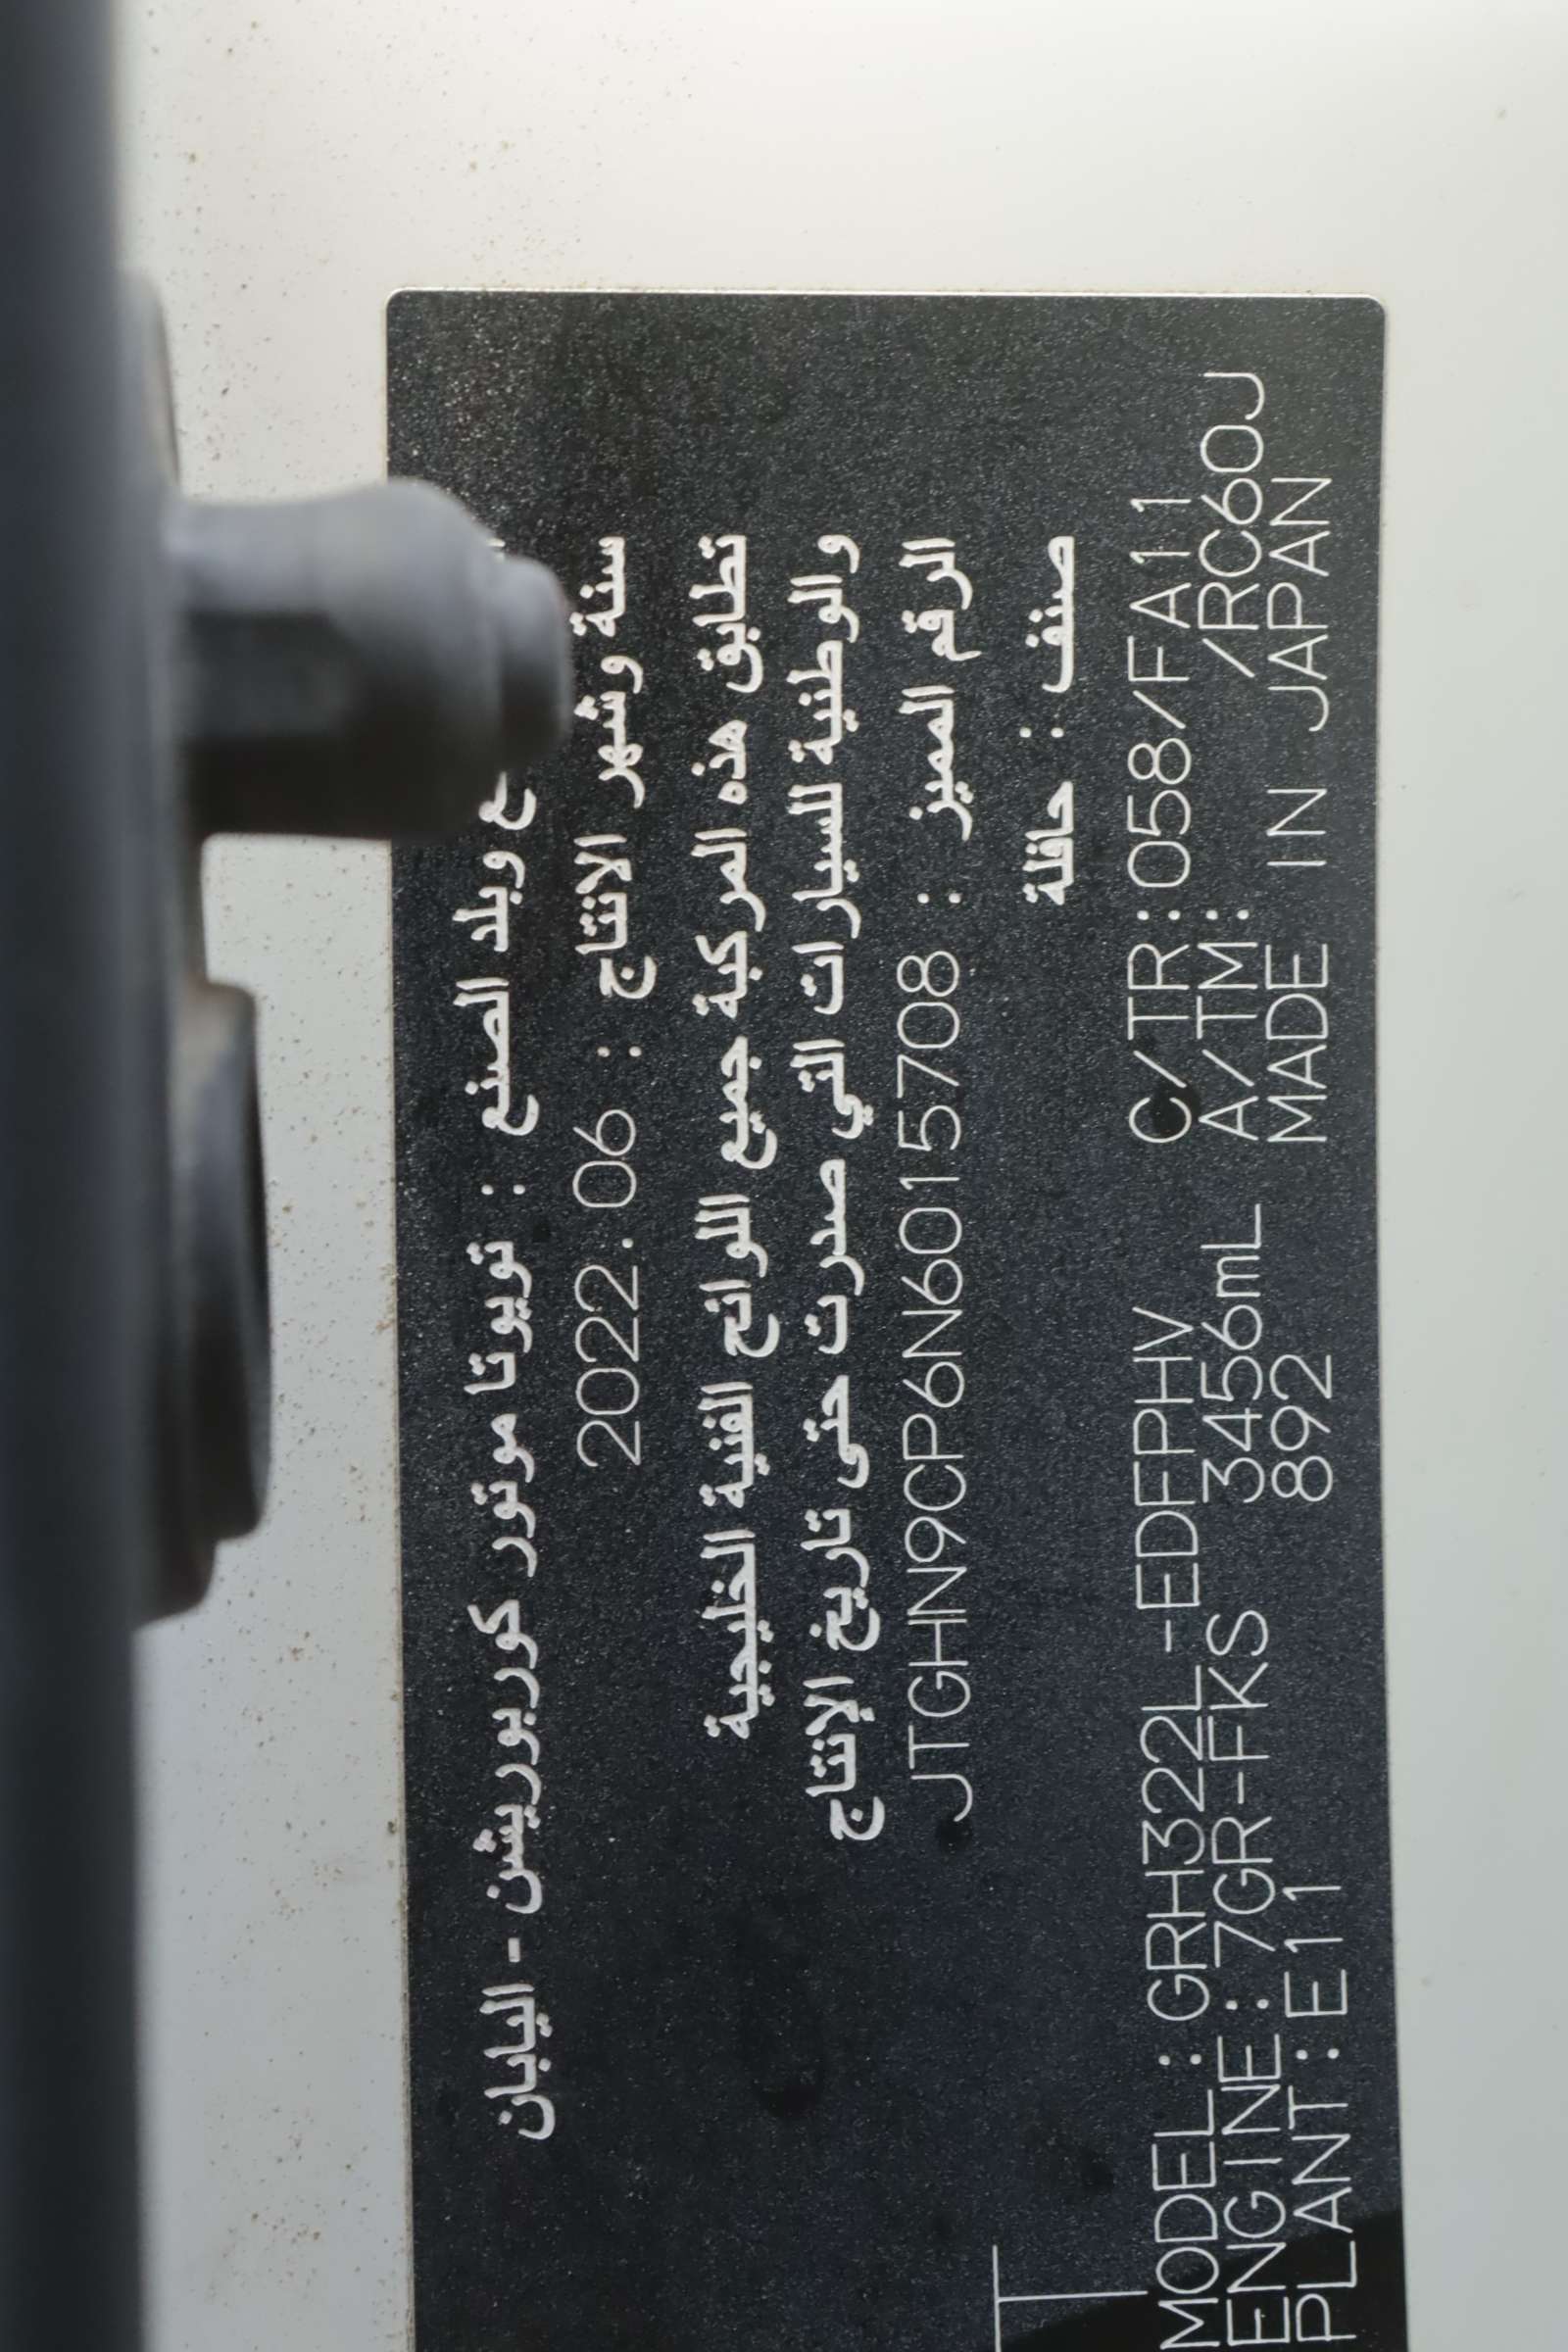 وبلد الصنع : تويوتا موتور كوربوريشن - اليابان
سنة وشهر الانتاج : 2022.06
تطابق هذه المركبة جميع اللوائح الفنية الخليجية
والوطنية للسيارات التي صدرت حتى تاريخ الإنتاج
الرقم المميز : JTGHN9CP6N6015708
صنف : حافلة
MODEL:GRH322L-EDFPHV C/TR:058/FA11
ENGINE:7GR-FKS 3456mL A/TM: /RC60J
PLANT:E11 892 MADE IN JAPAN